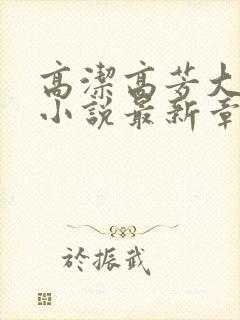 高潔高芳大
小說最新章
於振武